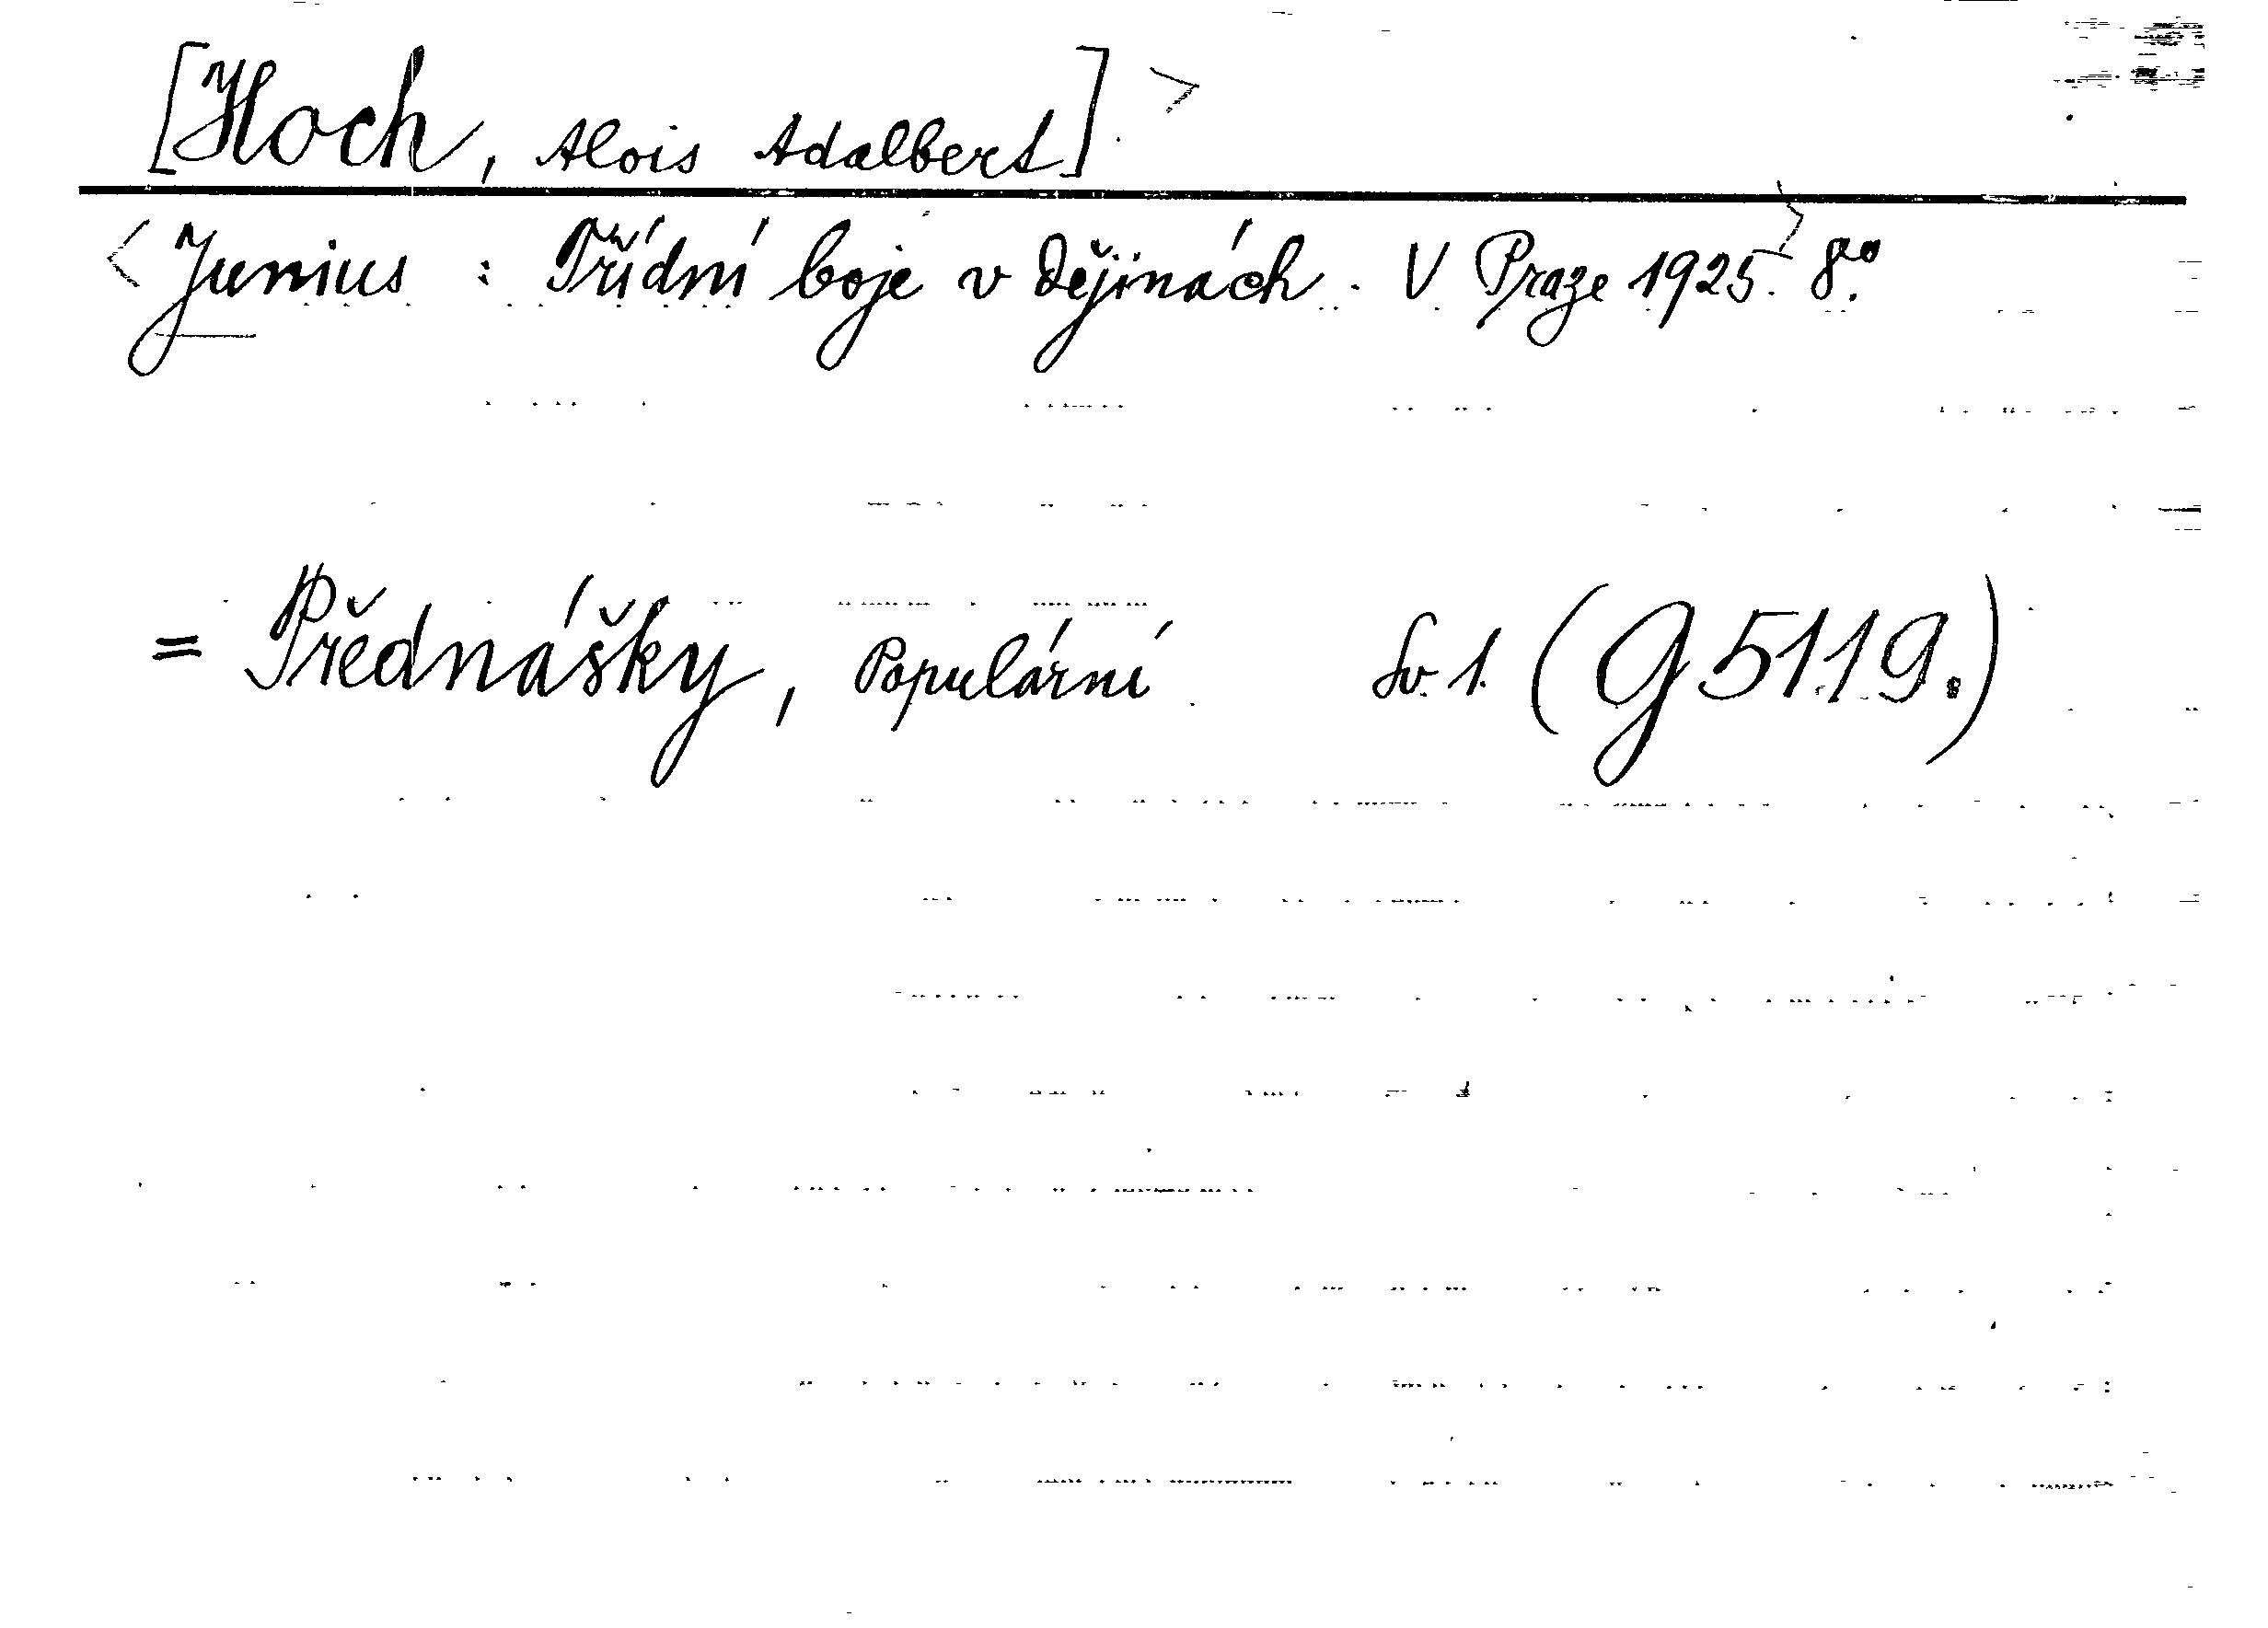 [Hoch, Alois Adalbert] >
< Junius : Třídní boje v dějinách. V Praze 1925. > 8°.
= Přednášky, Populární Sv. 1. (G 5119.)